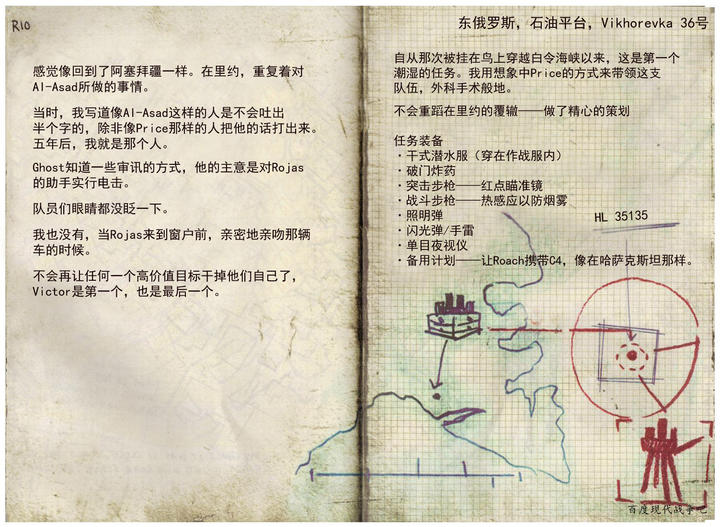 R10
感觉像回到了阿塞拜疆一样。在里约，重复着对
Al-Asad所做的事情。
当时，我写道像Al-Asad这样的人是不会吐出
半个字的，除非像Price那样的人把他的话打出来。
五年后，我就是那个人。
Ghost知道一些审讯的方式，他的主意是对Rojas
的助手实行电击。
队员们眼睛都没眨一下。
我也没有，当Rojas来到窗户前，亲密地亲吻那辆
车的时候。
不会再让任何一个高价值目标干掉他们自己了，
Victor是第一个，也是最后一个。
东俄罗斯，石油平台，Vikhorevka 36号
自从那次被挂在鸟上穿越白令海峡以来，这是第一个
潮湿的任务。我用想象中Price的方式来带领这支
队伍，外科手术般地。
不会重蹈在里约的覆辙——做了精心的策划
任务装备
·干式潜水服（穿在作战服内）
·破门炸药
·突击步枪——红点瞄准镜
·战斗步枪——热感应以防烟雾
·照明弹
·闪光弹/手雷
·单目夜视仪
·备用计划——让Roach携带C4，像在哈萨克斯坦那样。
HL 35135
百度现代战争吧